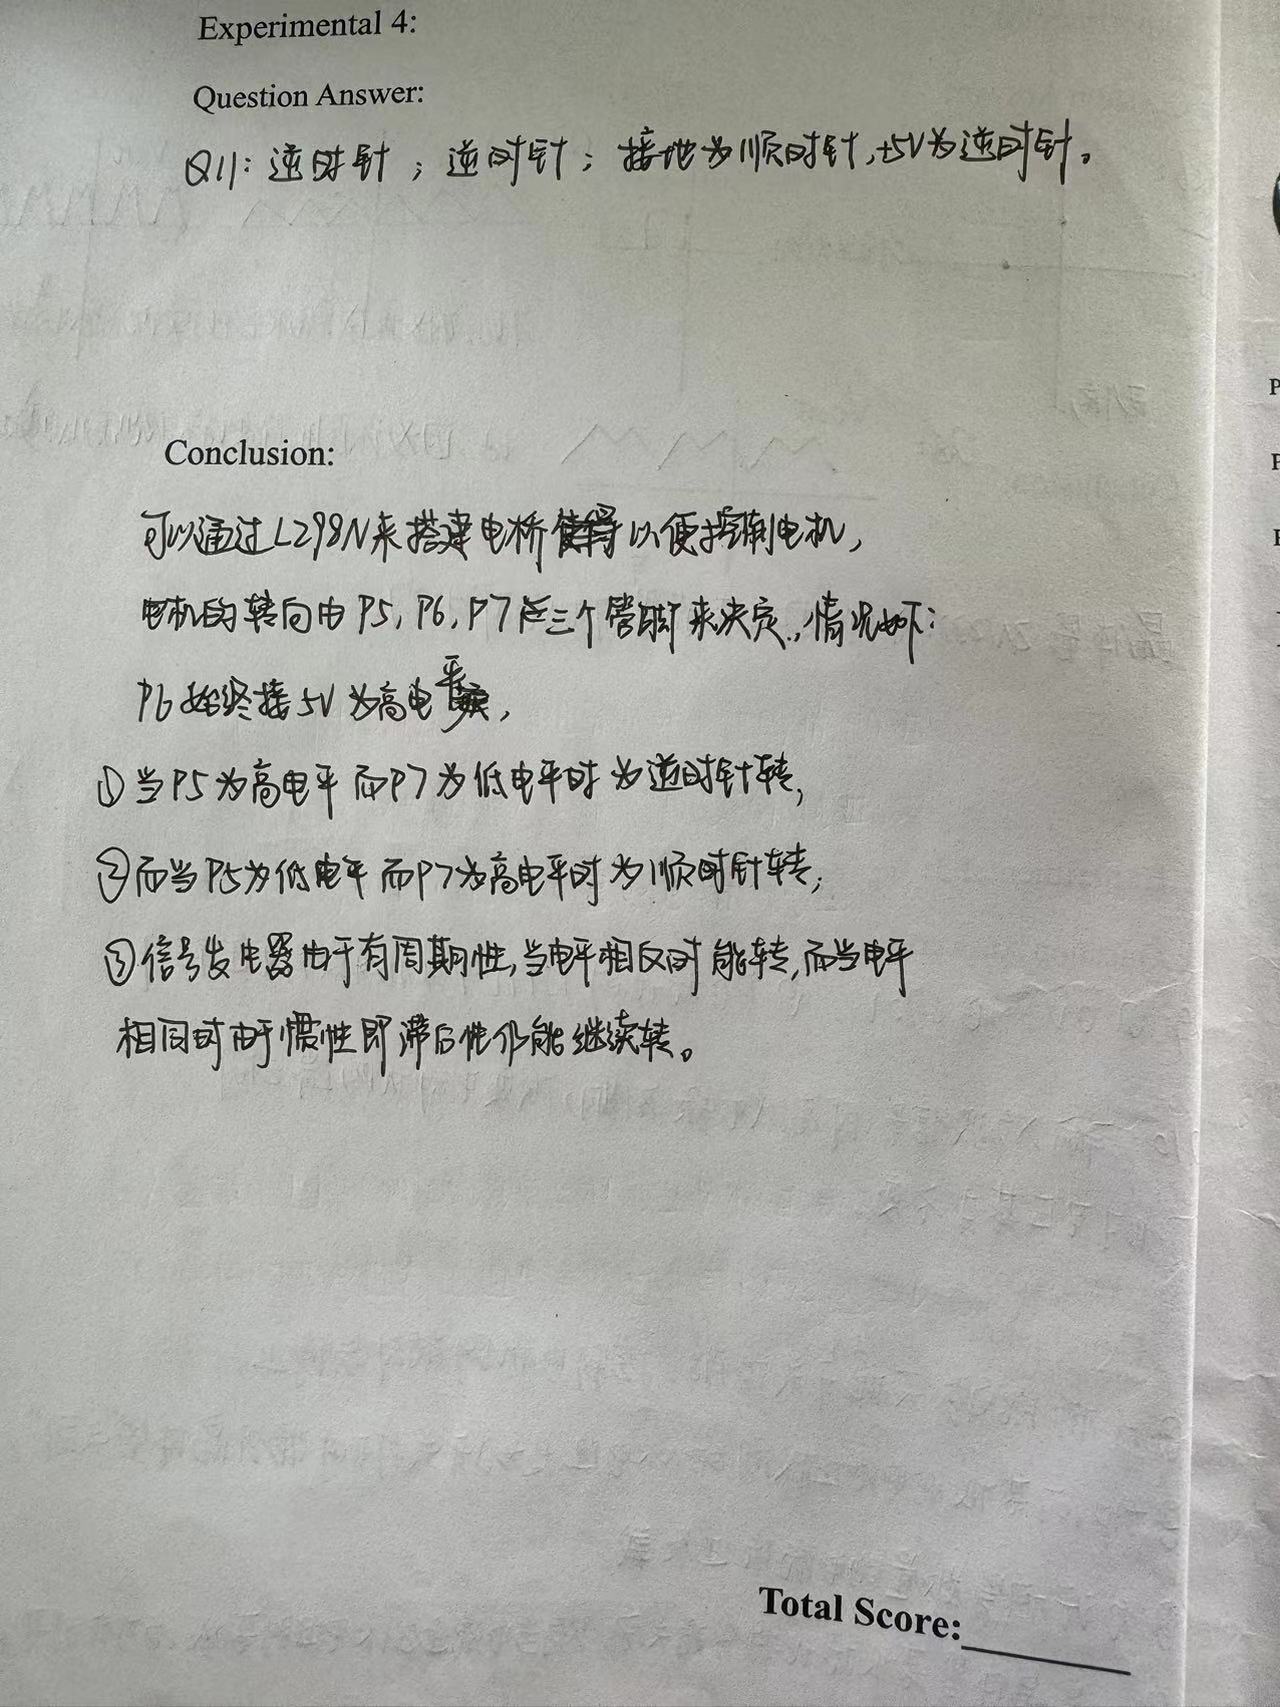 Experimental 4:
Question Answer:
Q11: 逆时针；逆时针；接地为顺时针,+5V为逆时针。
Conclusion:
可以通过L298N来搭建电桥以便控制电机,
电机的转向由P5,P6,P7这三个管脚来决定,情况如下:
P6始终接5V为高电平,
①当P5为高电平而P7为低电平时为逆时针转,
②而当P5为低电平而P7为高电平时为顺时针转;
③信号发电器由于有周期性,当电平相反时能转,而当电平
相同时由于惯性即滞后性仍能继续转。
Total Score: